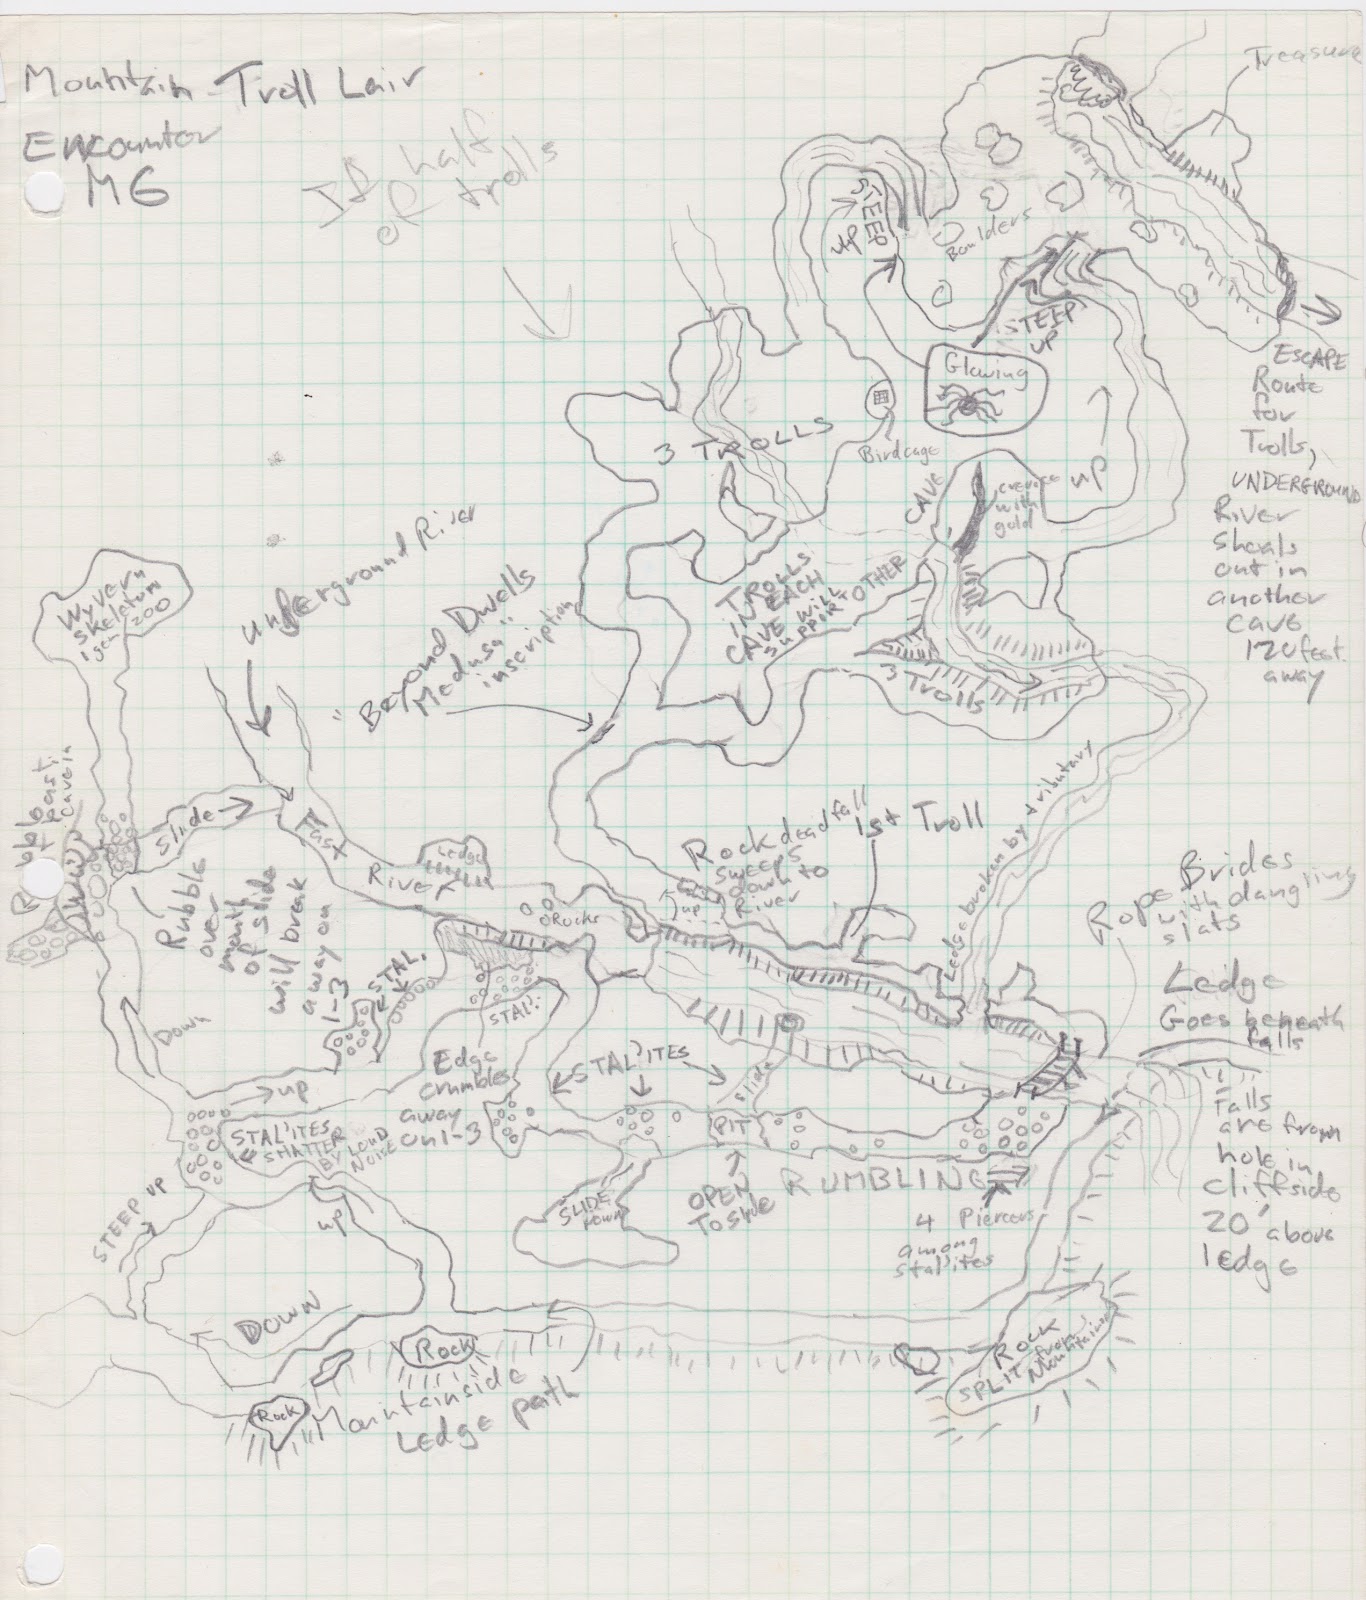 Mountain Troll Lair
Encounter
M6
If half
of
trolls
Treasure
STEEP
UP
Boulders
STEEP
UP
Glowing
Birdcage
3 TROLLS
CAVE
crevice
with
gold
UP
ESCAPE
Route
for
Trolls,
UNDERGROUND
River
Sheals
out in
another
cave
120 feet
away
TROLLS
IN EACH
CAVE WILL
SUPPORT OTHER
3 Trolls
Underground River
"Beyond Dwells
Medusa"
inscription
Wyvern
Skeleton
1 gem / 200
Rubble
past
cavein
Slide
Fast
River
Ledge
Rocks
Rubble
over
mouth
of slide
will break
away on
1-3
STAL.
STAL'.
Down
up
Rock deadfall
sweeps
down to
River
up
1st Troll
Ledge broken by tributary
Rope Brides
with dangling
slats
Ledge
Goes beneath
falls
Falls
are from
hole in
cliffside
20' above
ledge
Edge
crumbles
away
on 1-3
STAL'ITES
slide
PIT
OPEN
To Slide
RUMBLING
4 Piercers
among
stal'ites
SLIDE
DOWN
STAL'ITES
SHATTER
BY LOUD
NOISE
STEEP UP
up
DOWN
Rock
Rock
Mountainside
Ledge path
ROCK
SPLIT from
Mountainside